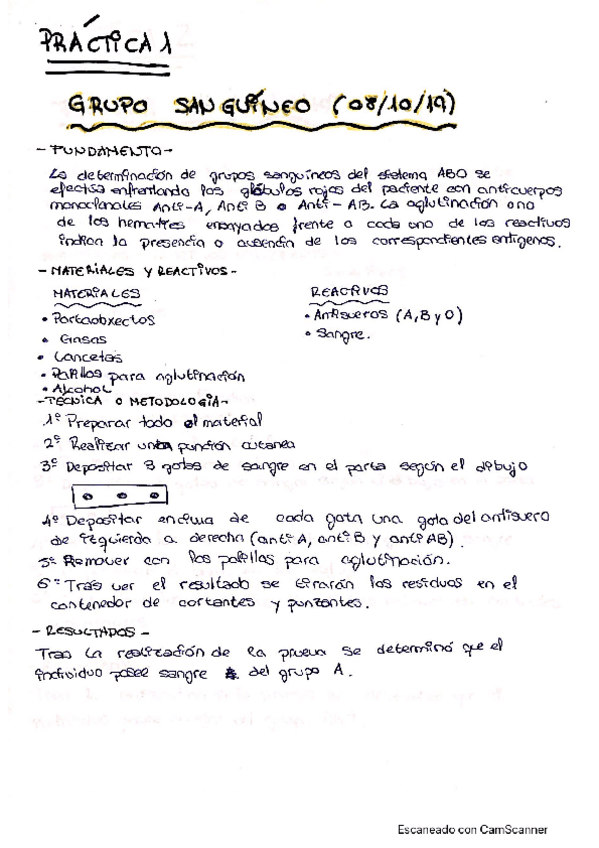 PRÁCTICA 1
GRUPO SANGUÍNEO (08/10/19)
- FUNDAMENTO -
La determinación de grupos sanguíneos del sistema ABO se
efectúa enfrentando los glóbulos rojos del paciente con anticuerpos
monoclonales Anti-A, Anti B o Anti-AB. La aglutinación o no
de los hematíes ensayados frente a cada uno de los reactivos
indican la presencia o ausencia de los correspondientes antígenos.
- MATERIALES Y REACTIVOS -
MATERIALES
REACTIVOS
• Portaobxectos
• Antisueros (A, B y O)
• Gasas
• Sangre.
• Lancetas
• Palillos para aglutinación
• Alcohol
- TÉCNICA O METODOLOGÍA -
1º Preparar todo el material
2º Realizar una punción cutánea
3º Depositar 3 gotas de sangre en el porta según el dibujo
4º Depositar encima de cada gota una gota del antisuero
de izquierda a derecha (anti A, anti B y anti AB).
5º Remover con los palillos para aglutinación.
6º Tras ver el resultado se tirarán los residuos en el
contenedor de cortantes y punzantes.
- RESULTADOS -
Tras la realización de la prueba se determinó que el
individuo posee sangre del grupo A.
Escaneado con CamScanner